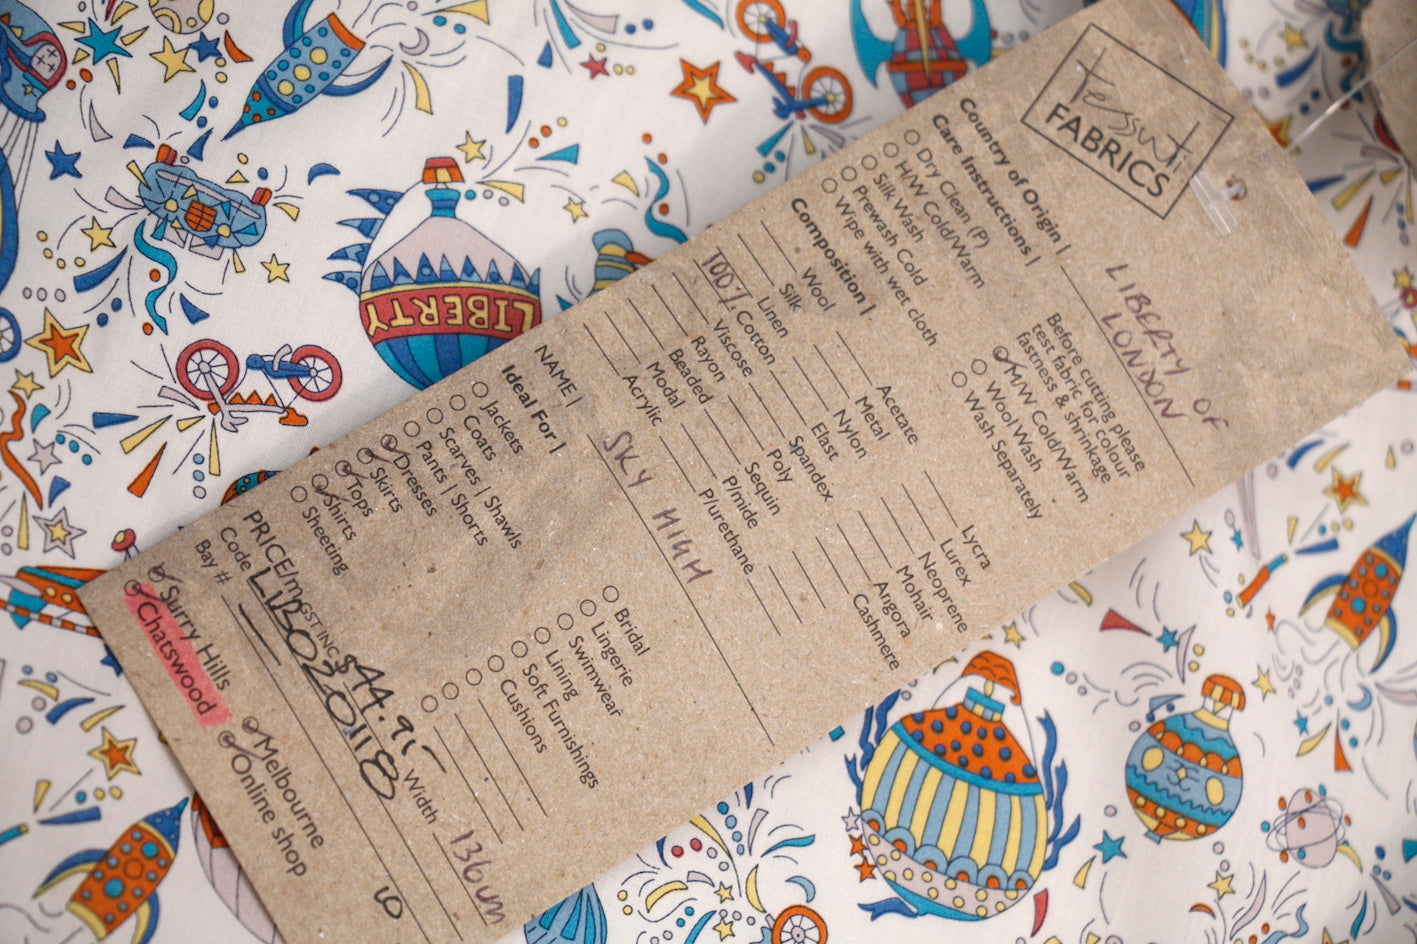 tessuti
FABRICS
LIBERTY OF
LONDON
Country of Origin |
Care Instructions |
Dry Clean (P)
H/W Cold/Warm
Silk Wash
Prewash Cold
Wipe with wet cloth
Before cutting please
test fabric for colour
fastness & shrinkage
M/W Cold/Warm
Wool Wash
Wash Separately
Composition |
Wool
Silk
Linen
100% Cotton
Viscose
Rayon
Beaded
Modal
Acrylic
Acetate
Metal
Nylon
Elast
Spandex
Poly
Sequin
P/mide
P/urethane
Lycra
Lurex
Neoprene
Mohair
Angora
Cashmere
NAME | SKY HIGH
Ideal For |
Jackets
Coats
Scarves | Shawls
Pants | Shorts
Dresses
Skirts
Tops
Shirts
Sheeting
Bridal
Lingerie
Swimwear
Lining
Soft Furnishings
Cushions
PRICE/m GST INC $44.95 Width 136cm
Code LIB0320118
Bay #
Surry Hills
Chatswood
Melbourne
Online shop
LIBERTY